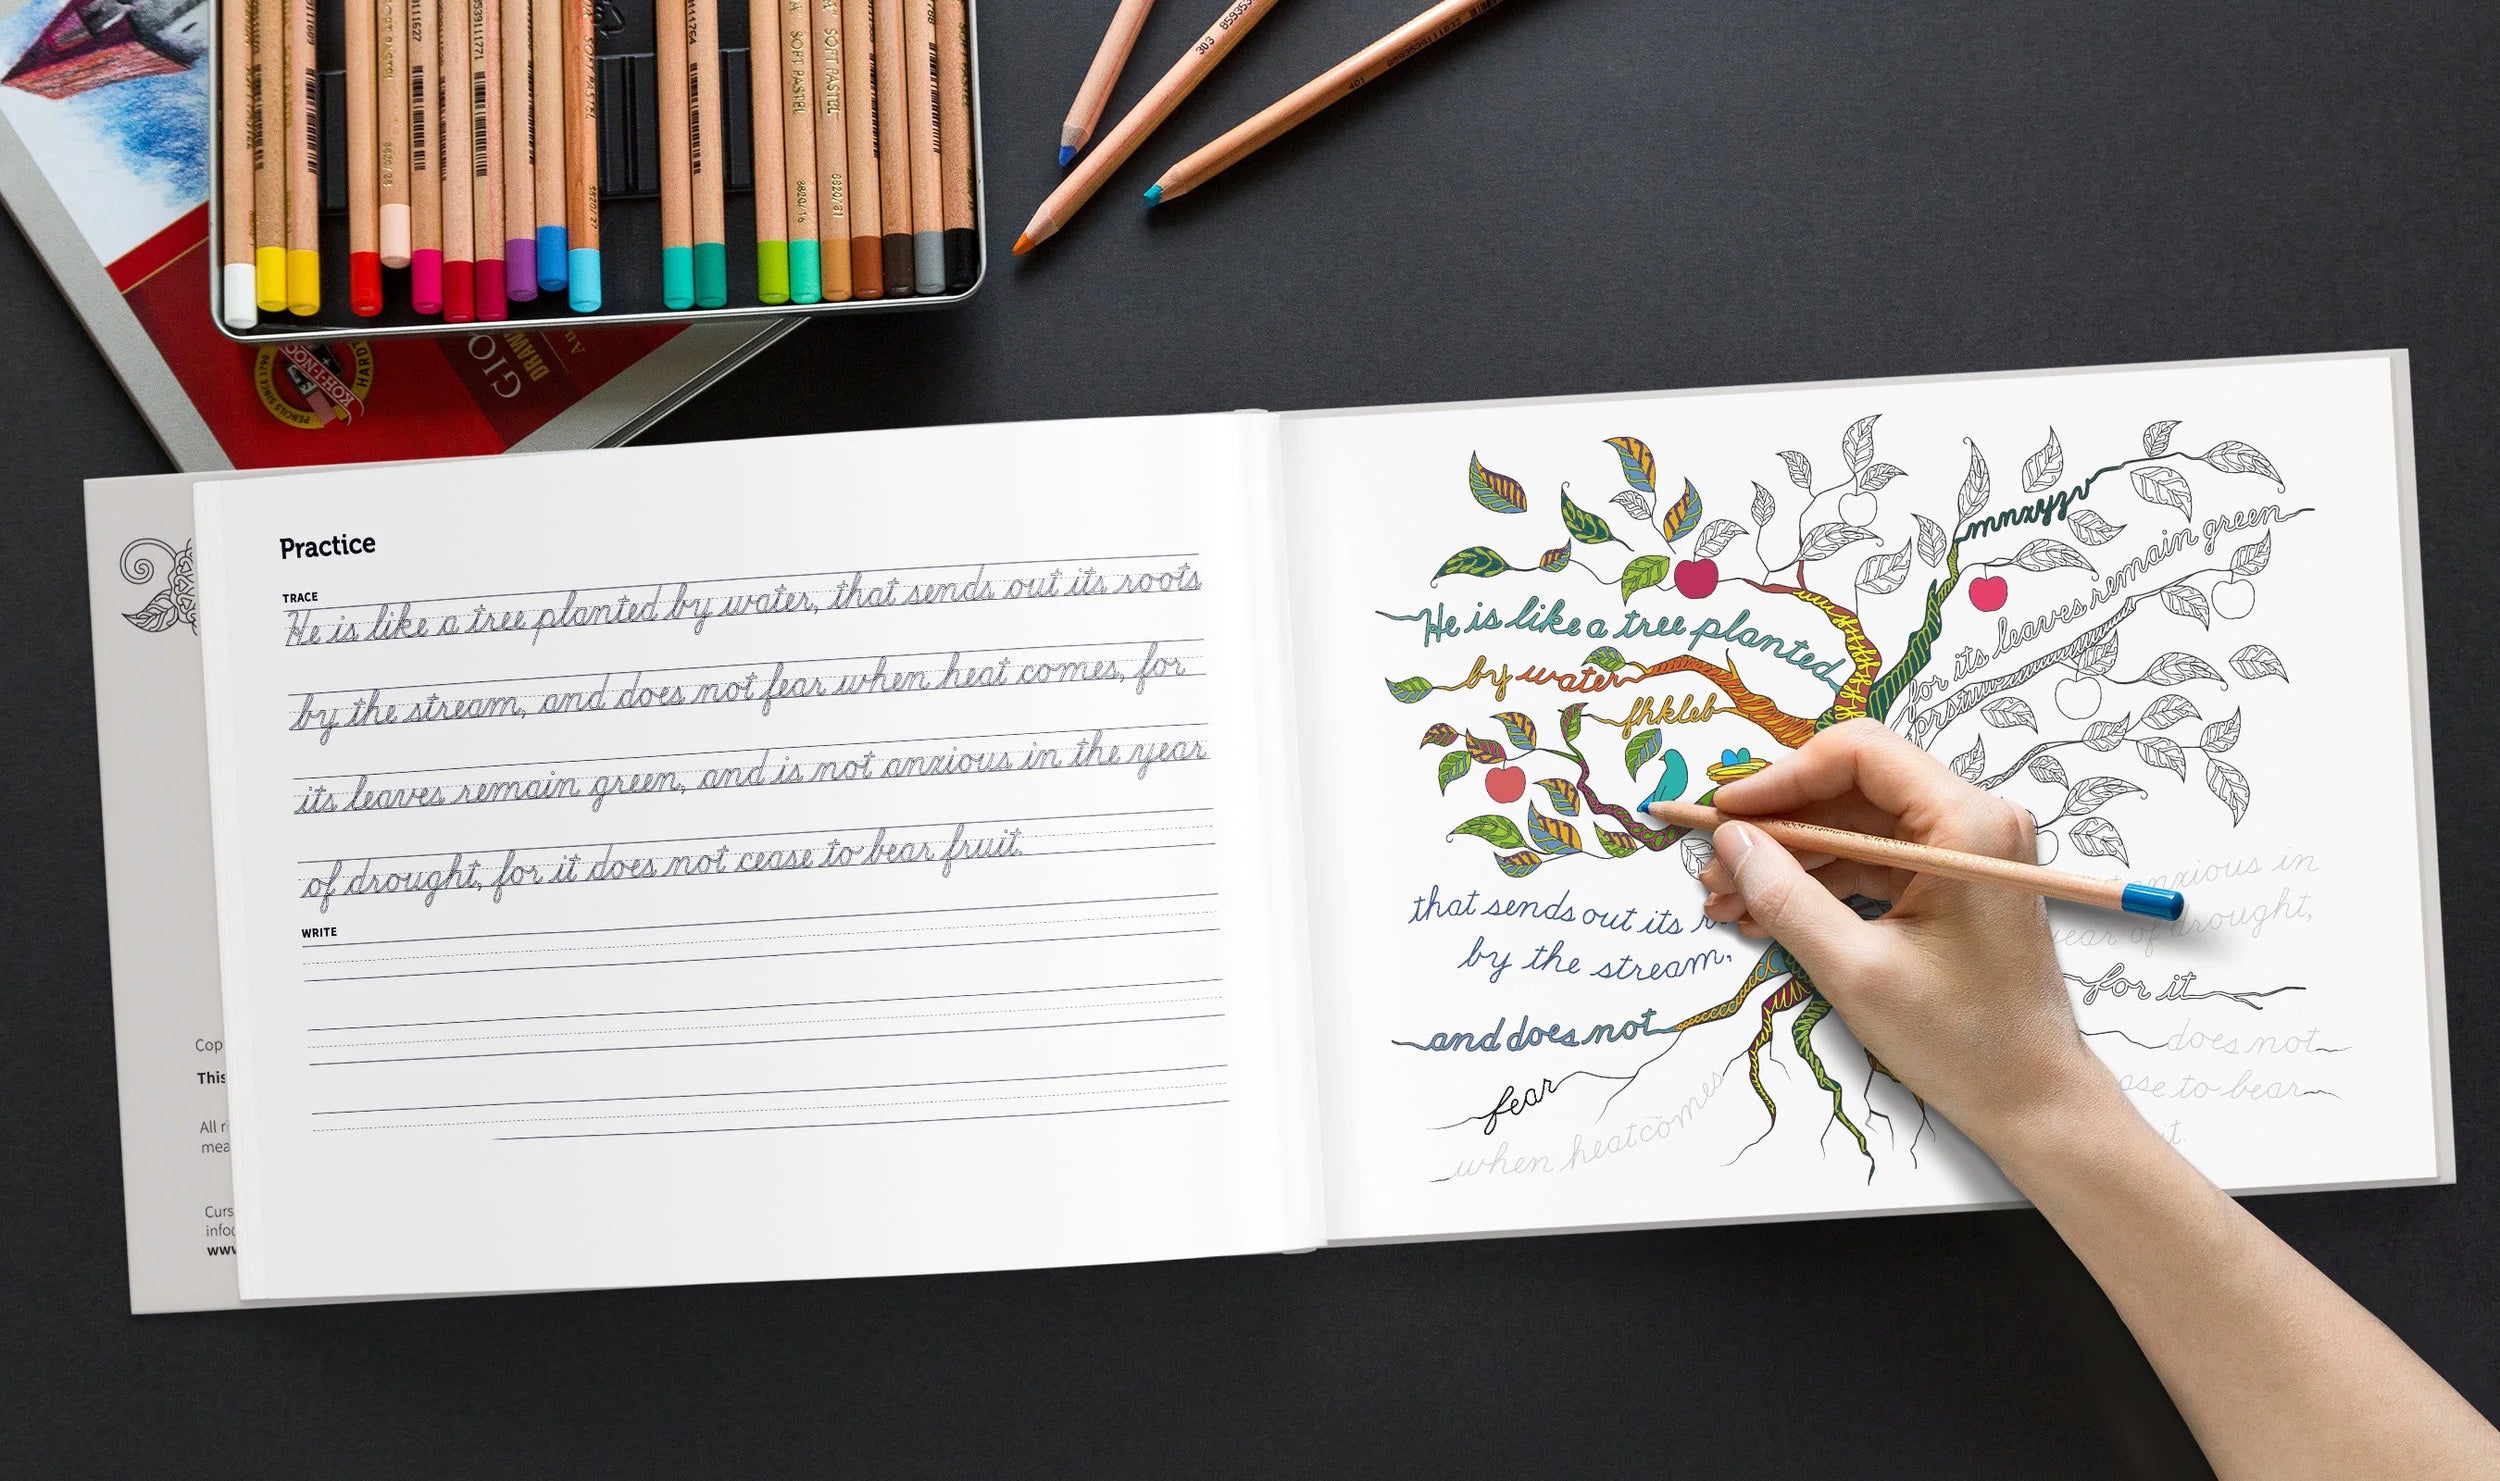 8593539
303
401
SOFT PASTEL
SOFT PASTEL
8820/16
8820/31
8820/28
8820/27
KOH-I-NOOR
HARDT
PENCILS SINCE 1790
GIO
DRAW
Practice
TRACE
He is like a tree planted by water, that sends out its roots
by the stream, and does not fear when heat comes, for
its leaves remain green, and is not anxious in the year
of drought, for it does not cease to bear fruit.
WRITE
Cop
This
All ri
mea
Curs
info
www
He is like a tree planted
by water
fhkleb
that sends out its r
by the stream,
and does not
fear
when heat comes
mnxyzv
for its leaves remain green
prstuw
anxious in
year of drought,
for it
does not
ase to bear
it.